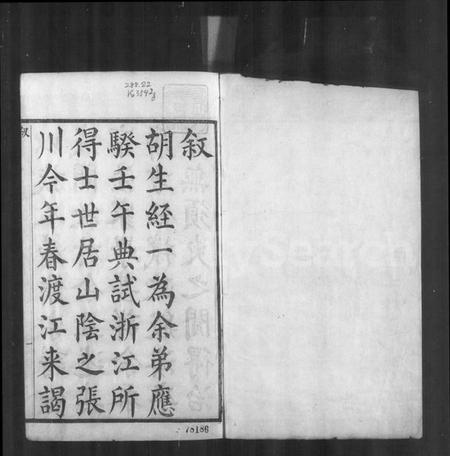 288.82
叙
胡生經一為余弟應
騤壬午典試浙江所
得士世居山陰之張
川今年春渡江来謁
叙
78186